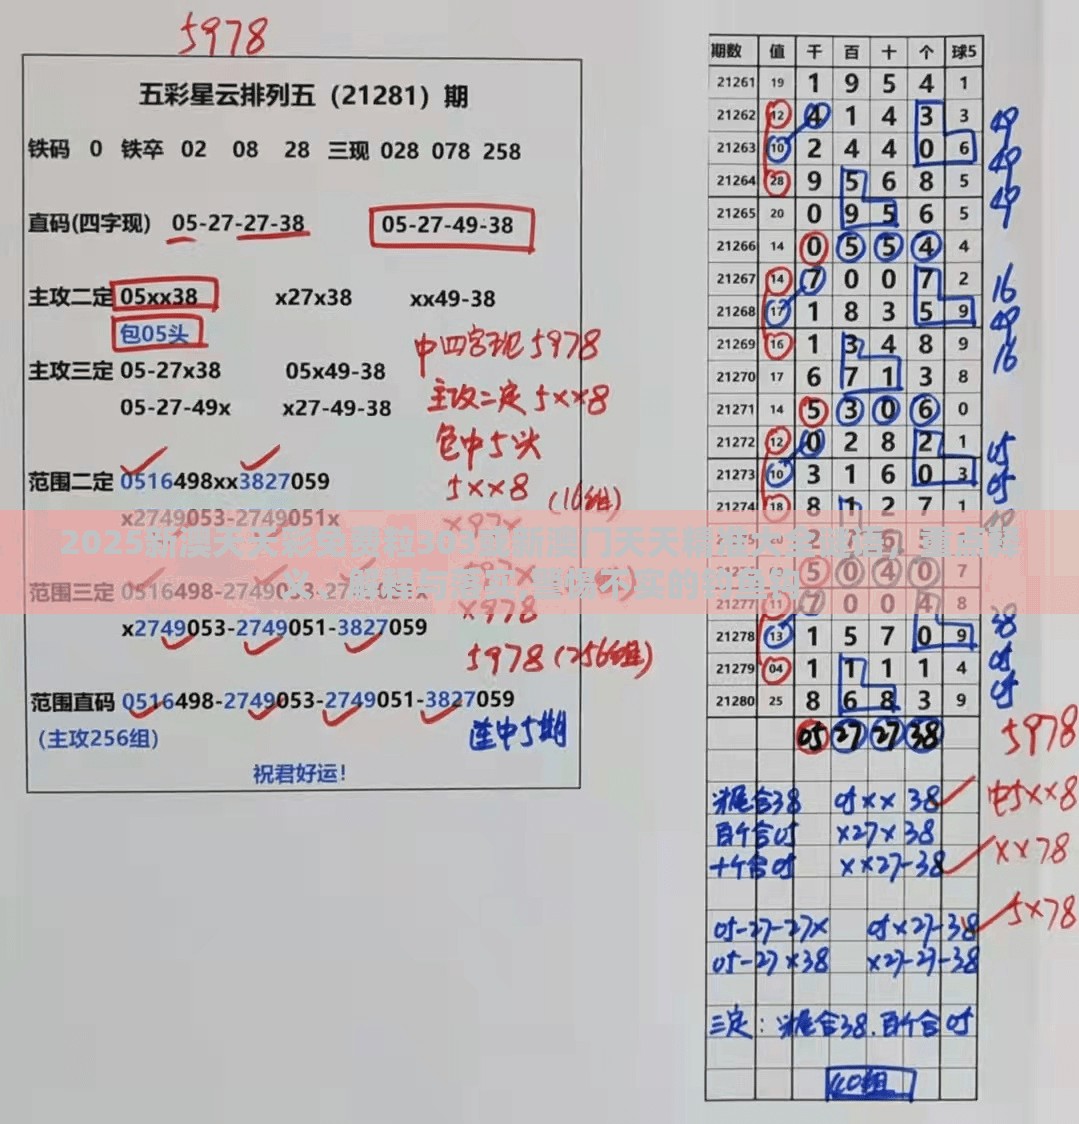 5978
五彩星云排列五（21281）期
铁码 0 铁卒 02 08 28 三现 028 078 258
直码(四字现) 05-27-27-38 05-27-49-38
主攻二定 05xx38 x27x38 xx49-38
包05头
主攻三定 05-27x38 05x49-38
05-27-49x x27-49-38
范围二定 0516498xx3827059
x2749053-2749051x
范围三定
x2749053-2749051-3827059
范围直码 0516498-2749053-2749051-3827059
（主攻256组）
祝君好运！
中四字现5978
主攻二定5xx8
包中5头
5xx8 (16组)
x97x
x978
5978 (256组)
连中5期
期数 值 千 百 十 个 球5
21261 19 1 9 5 4 1
21262 12 4 1 4 3 3
21263 10 2 4 4 0 6
21264 28 9 5 6 8 5
21265 20 0 9 5 6 5
21266 14 0 5 5 4 4
21267 14 7 0 0 7 2
21268 17 1 8 3 5 9
21269 16 1 3 4 8 9
21270 17 6 7 1 3 8
21271 14 5 3 0 6 0
21272 12 0 2 8 2 1
21273 10 3 1 6 0 3
21274 18 8 1 2 7 1
5 0 4 0 7
21277 11 7 0 0 4 8
21278 13 1 5 7 0 9
21279 04 1 1 1 1 4
21280 25 8 6 8 3 9
05 27 27 38
49
49
49
16
49
16
05
05
38
05
05
5978
头尾合38 05xx38 中5xx8
百个合05 x27x38
十个合05 xx27-38 xx78
05-27-27x 05x27-38 5x78
05-27x38 x27-27-38
三定：头尾合38.百个合05
40组